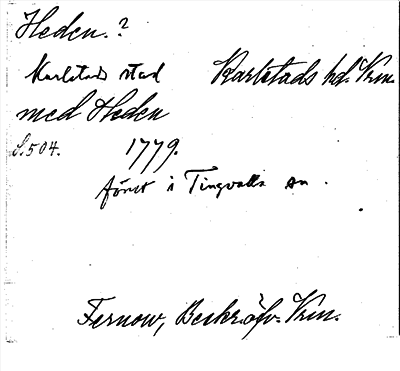 Heden.?
Karlstads stad Karlstads hd. Vrm.
med Heden
S. 504. 1779.
förut i Tingvalla sn.
Fernow, Beskr. öfv. Vrm.